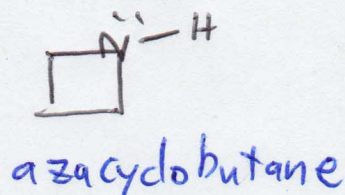 N̈ — H
azacyclobutane